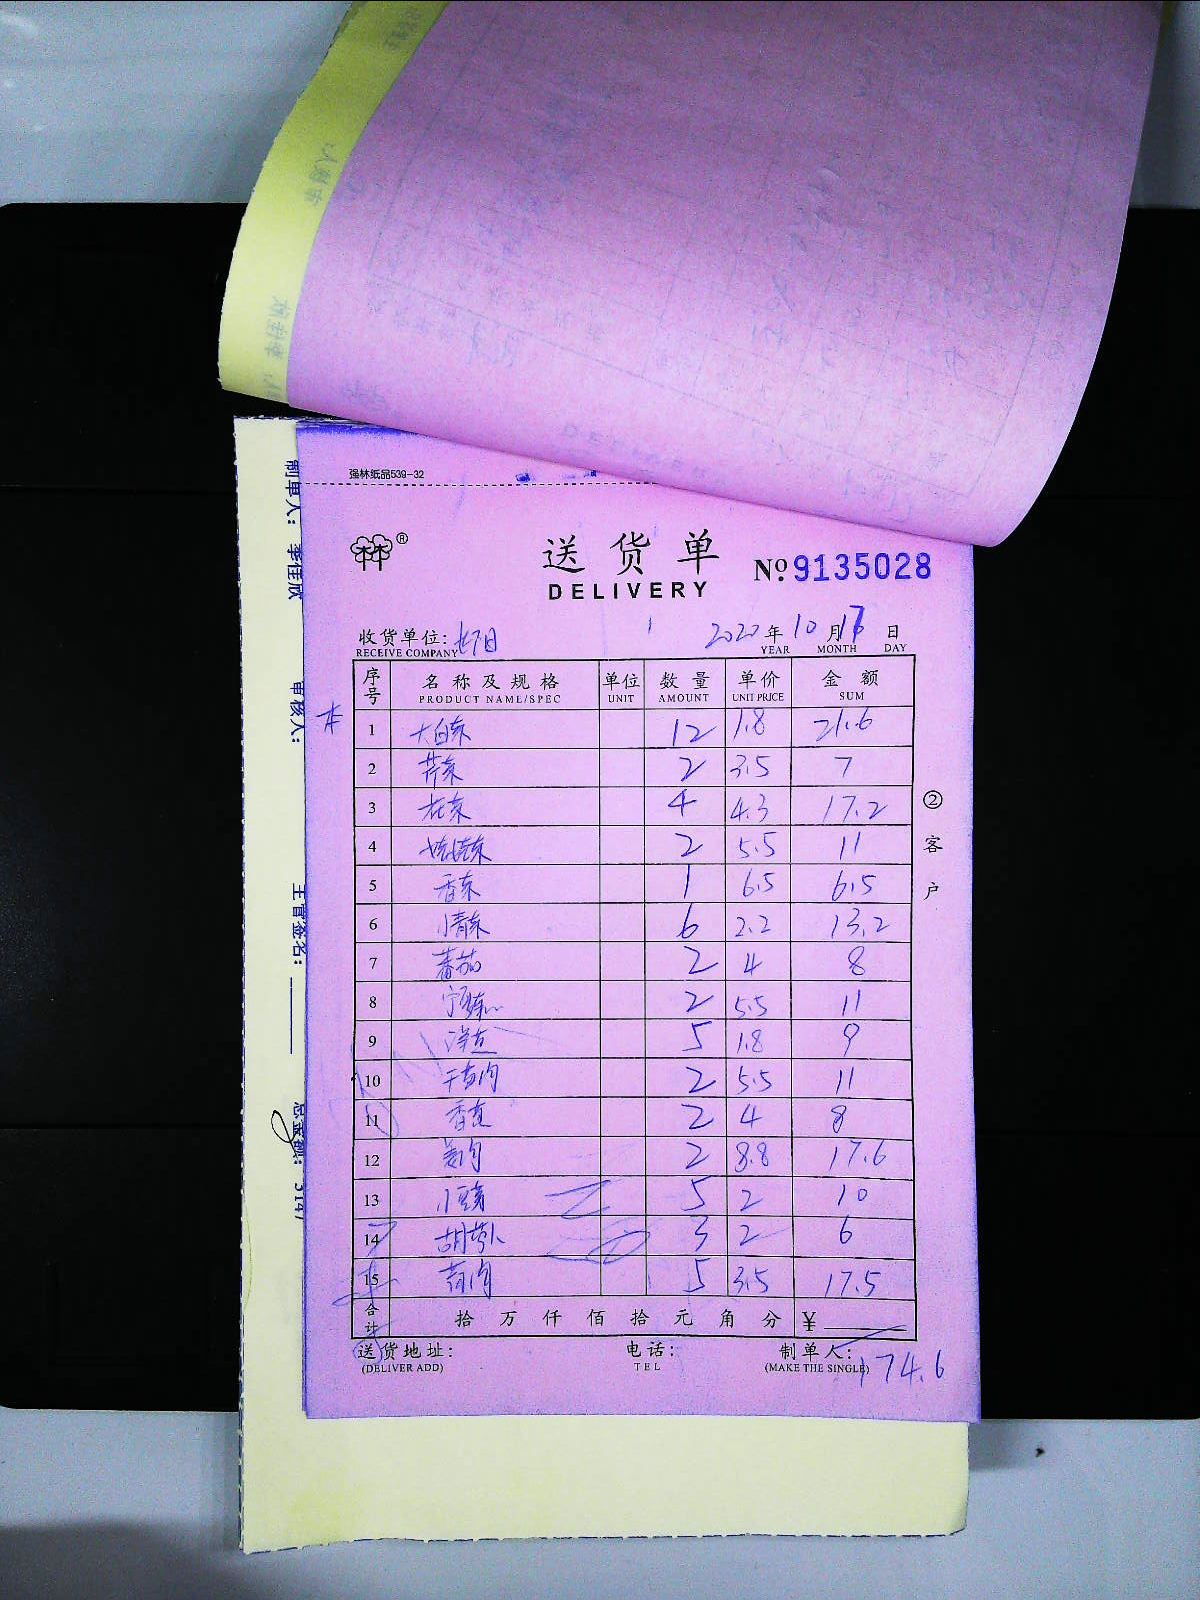 强林纸品539-32
送货单
DELIVERY
№ 9135028
收货单位:
RECEIVE COMPANY
2020年10月17日
YEAR MONTH DAY
序号 名称及规格 单位 数量 单价 金额
PRODUCT NAME/SPEC UNIT AMOUNT UNIT PRICE SUM
1 大白菜 12 1.8 21.6
2 芹菜 2 3.5 7
3 花菜 4 4.3 17.2
4 2 5.5 11
5 香菜 1 6.5 6.5
6 小青菜 6 2.2 13.2
7 蕃茄 2 4 8
8 2 5.5 11
9 洋芋 5 1.8 9
10 2 5.5 11
11 2 4 8
12 姜肉 2 8.8 17.6
13 小豆腐 5 2 10
14 胡萝卜 3 2 6
15 5 3.5 17.5
合计 拾 万 仟 佰 拾 元 角 分 ¥
送货地址: 电话: 制单人:
(DELIVER ADD) TEL (MAKE THE SINGLE)
174.6
② 客户
制单人: 李佳欣
审核人:
主管签名:
总金额: 3147